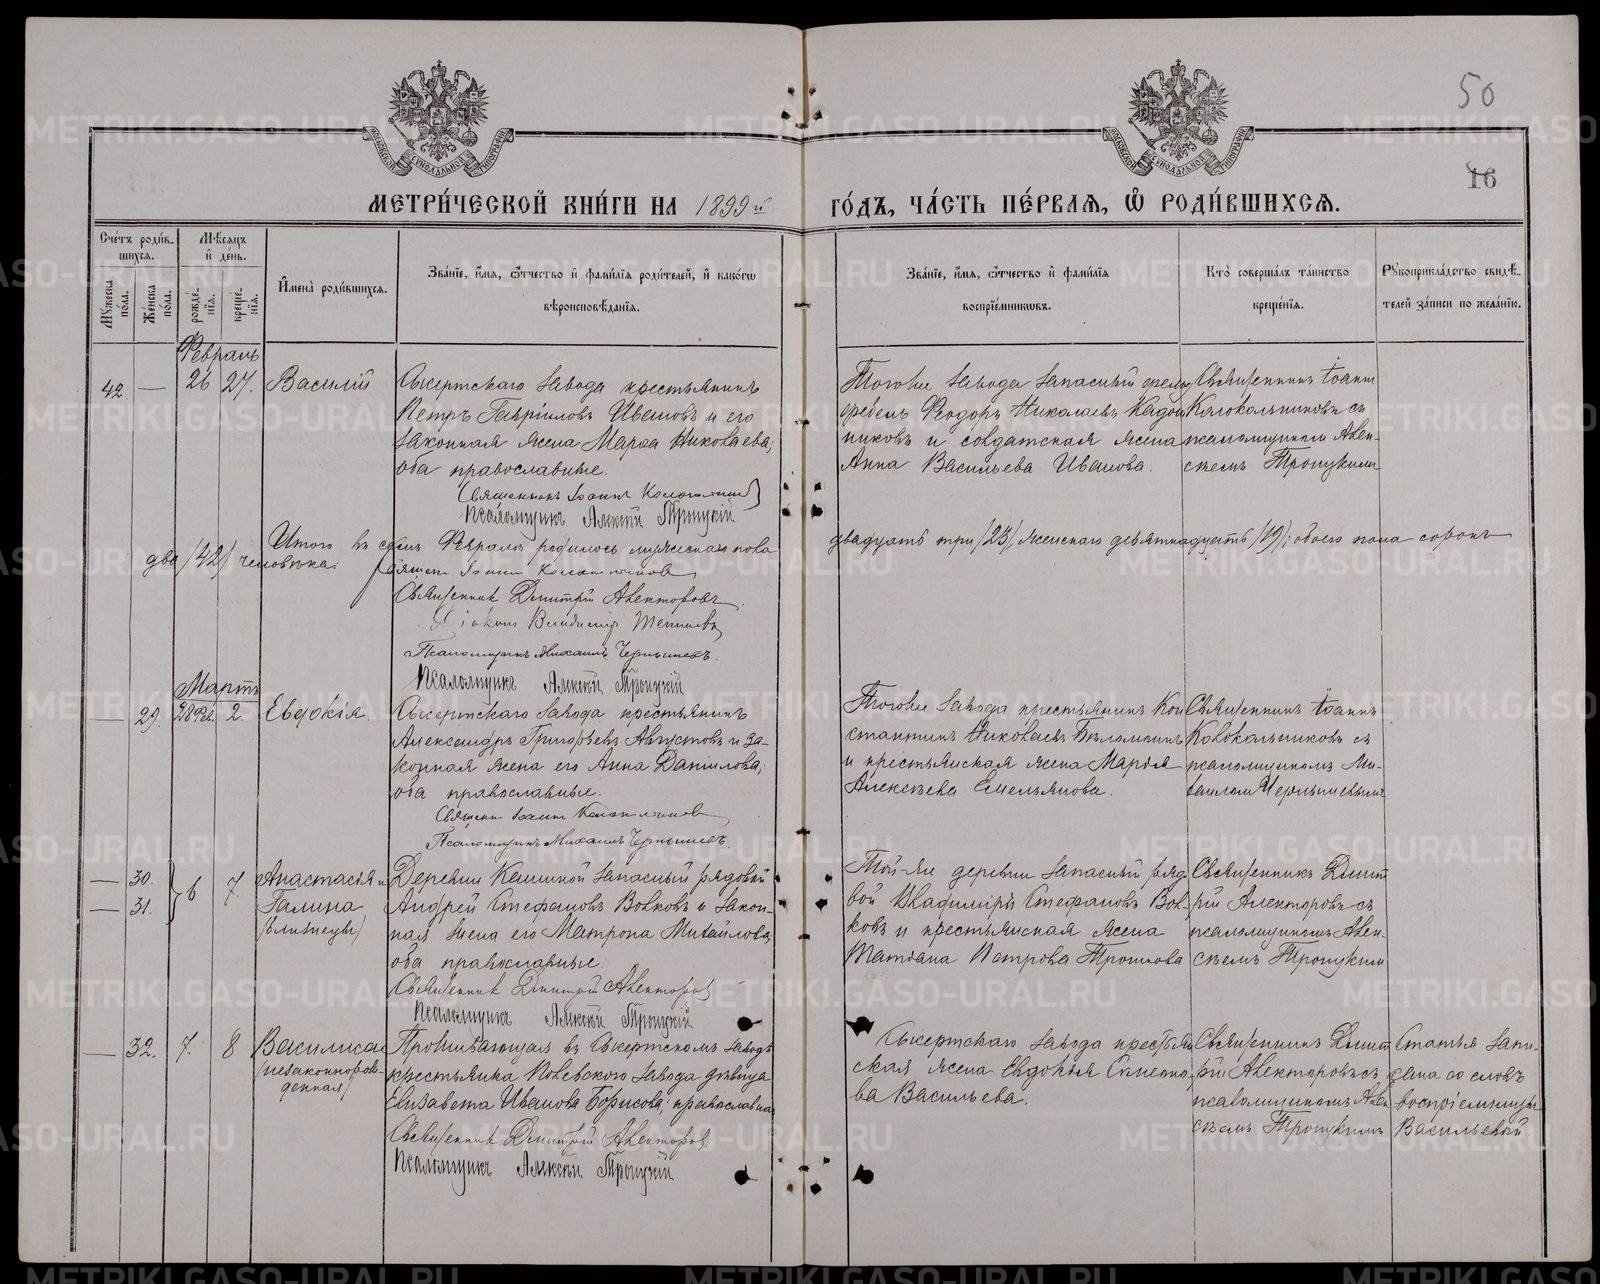 50
16
МЕТРИ́ЧЕСКОЙ КНИ́ГИ НА 1899й ГО́ДЪ, ЧА́СТЬ ПЕ́РВАЯ, Ѽ РОДИ́ВШИХСЯ.
Сче́тъ роди́в-
шихся.
Му́жеска по́ла.
Же́нска по́ла.
Мѣ́сяцъ
и҆ де́нь.
рожде́нїѧ.
креще́нїѧ.
И҆мена̀ роди́вшихся.
Зва́нїе, и҆́мя, ѻ҆́тчество и҆ фами́лїя роди́телей, и҆ како́гѡ
вѣроисповѣ́данїя.
Зва́нїе, и҆́мя, ѻ҆́тчество и҆ фами́лїя
воспрїе́мникѡвъ.
Кто̀ соверша́лъ та́инство
креще́нїя.
Рꙋкоприкла́дство свидѣ́-
телей за́писи по жела́нїю.
Февраль
42. — 26 27. Василій
Сысертскаго завода крестьянинъ
Петръ Гавріиловъ Ивановъ и его
законная жена Марѳа Николаева;
оба православные.
Священникъ Іоаннъ
Псаломщикъ Алексій Троицкій
Тогоже завода запасный
Ѳеодоръ Николаевъ Кадош
никовъ и солдатская жена
Анна Васильева Иванова.
Священникъ Іоаннъ
Колокольниковъ съ
псаломщикомъ Алек-
сѣемъ Троицкимъ
Итого въ семъ Февралѣ родилось мужескаго пола двадцать три /23/, женскаго девятнадцать /19/; обоего пола сорокъ
два /42/ человѣка.
Священ Іоаннъ
Священникъ Дмитрій Алекторовъ
Діаконъ Владимір
Псаломщикъ Михаилъ Чернышевъ.
Псаломщикъ Алексій Троицкій
Мартъ
— 29. 28 Фев. 2. Евдокія.
Сысертскаго завода крестьянинъ
Александръ Григорьевъ Августовъ и за-
конная жена его Анна Даніилова;
оба православные.
Священн Іоаннъ
Псаломщикъ Михаилъ Чернышевъ.
Тогоже завода крестьянинъ Кон
стантинъ Николаевъ
и крестьянская жена Марія
Алексѣева Емельянова.
Священникъ Іоаннъ
Колокольниковъ съ
псаломщикомъ Ми-
хаиломъ Чернышевымъ
— 30. 6 7. Анастасія и
— 31. Галина
/близнецы/
Деревни Кашиной запасный рядовой
Андрей Стефановъ Волковъ и закон-
ная жена его Матрона Михаилова,
оба православные.
Священник Дмитрій Алекторовъ
Псаломщикъ Алексій Троицкій
Той-же деревни запасный рядо
вой Владиміръ Стефановъ Вол-
ковъ и крестьянская жена
Татіана Петрова Трошкова
Священникъ Дмит
рій Алекторовъ съ
псаломщикомъ Алек-
сѣемъ Троицкимъ
— 32. 7. 8 Василиса
/незаконнорож-
денная/
Проживающая въ Сысертскомъ заводѣ
крестьянка Полевскаго завода дѣвица
Елизавета Иванова Борисова; православная
Священник Дмитрій Алекторовъ
Псаломщикъ Алексій Троицкій
Сысертскаго завода крестьян
ская жена Евдокія
ва Васильева.
Священникъ Дмит
рій Алекторовъ съ
псаломщикомъ Алек
сѣемъ Троицкимъ
Статья запи-
сана со словъ
воспріемницы
Васильевой